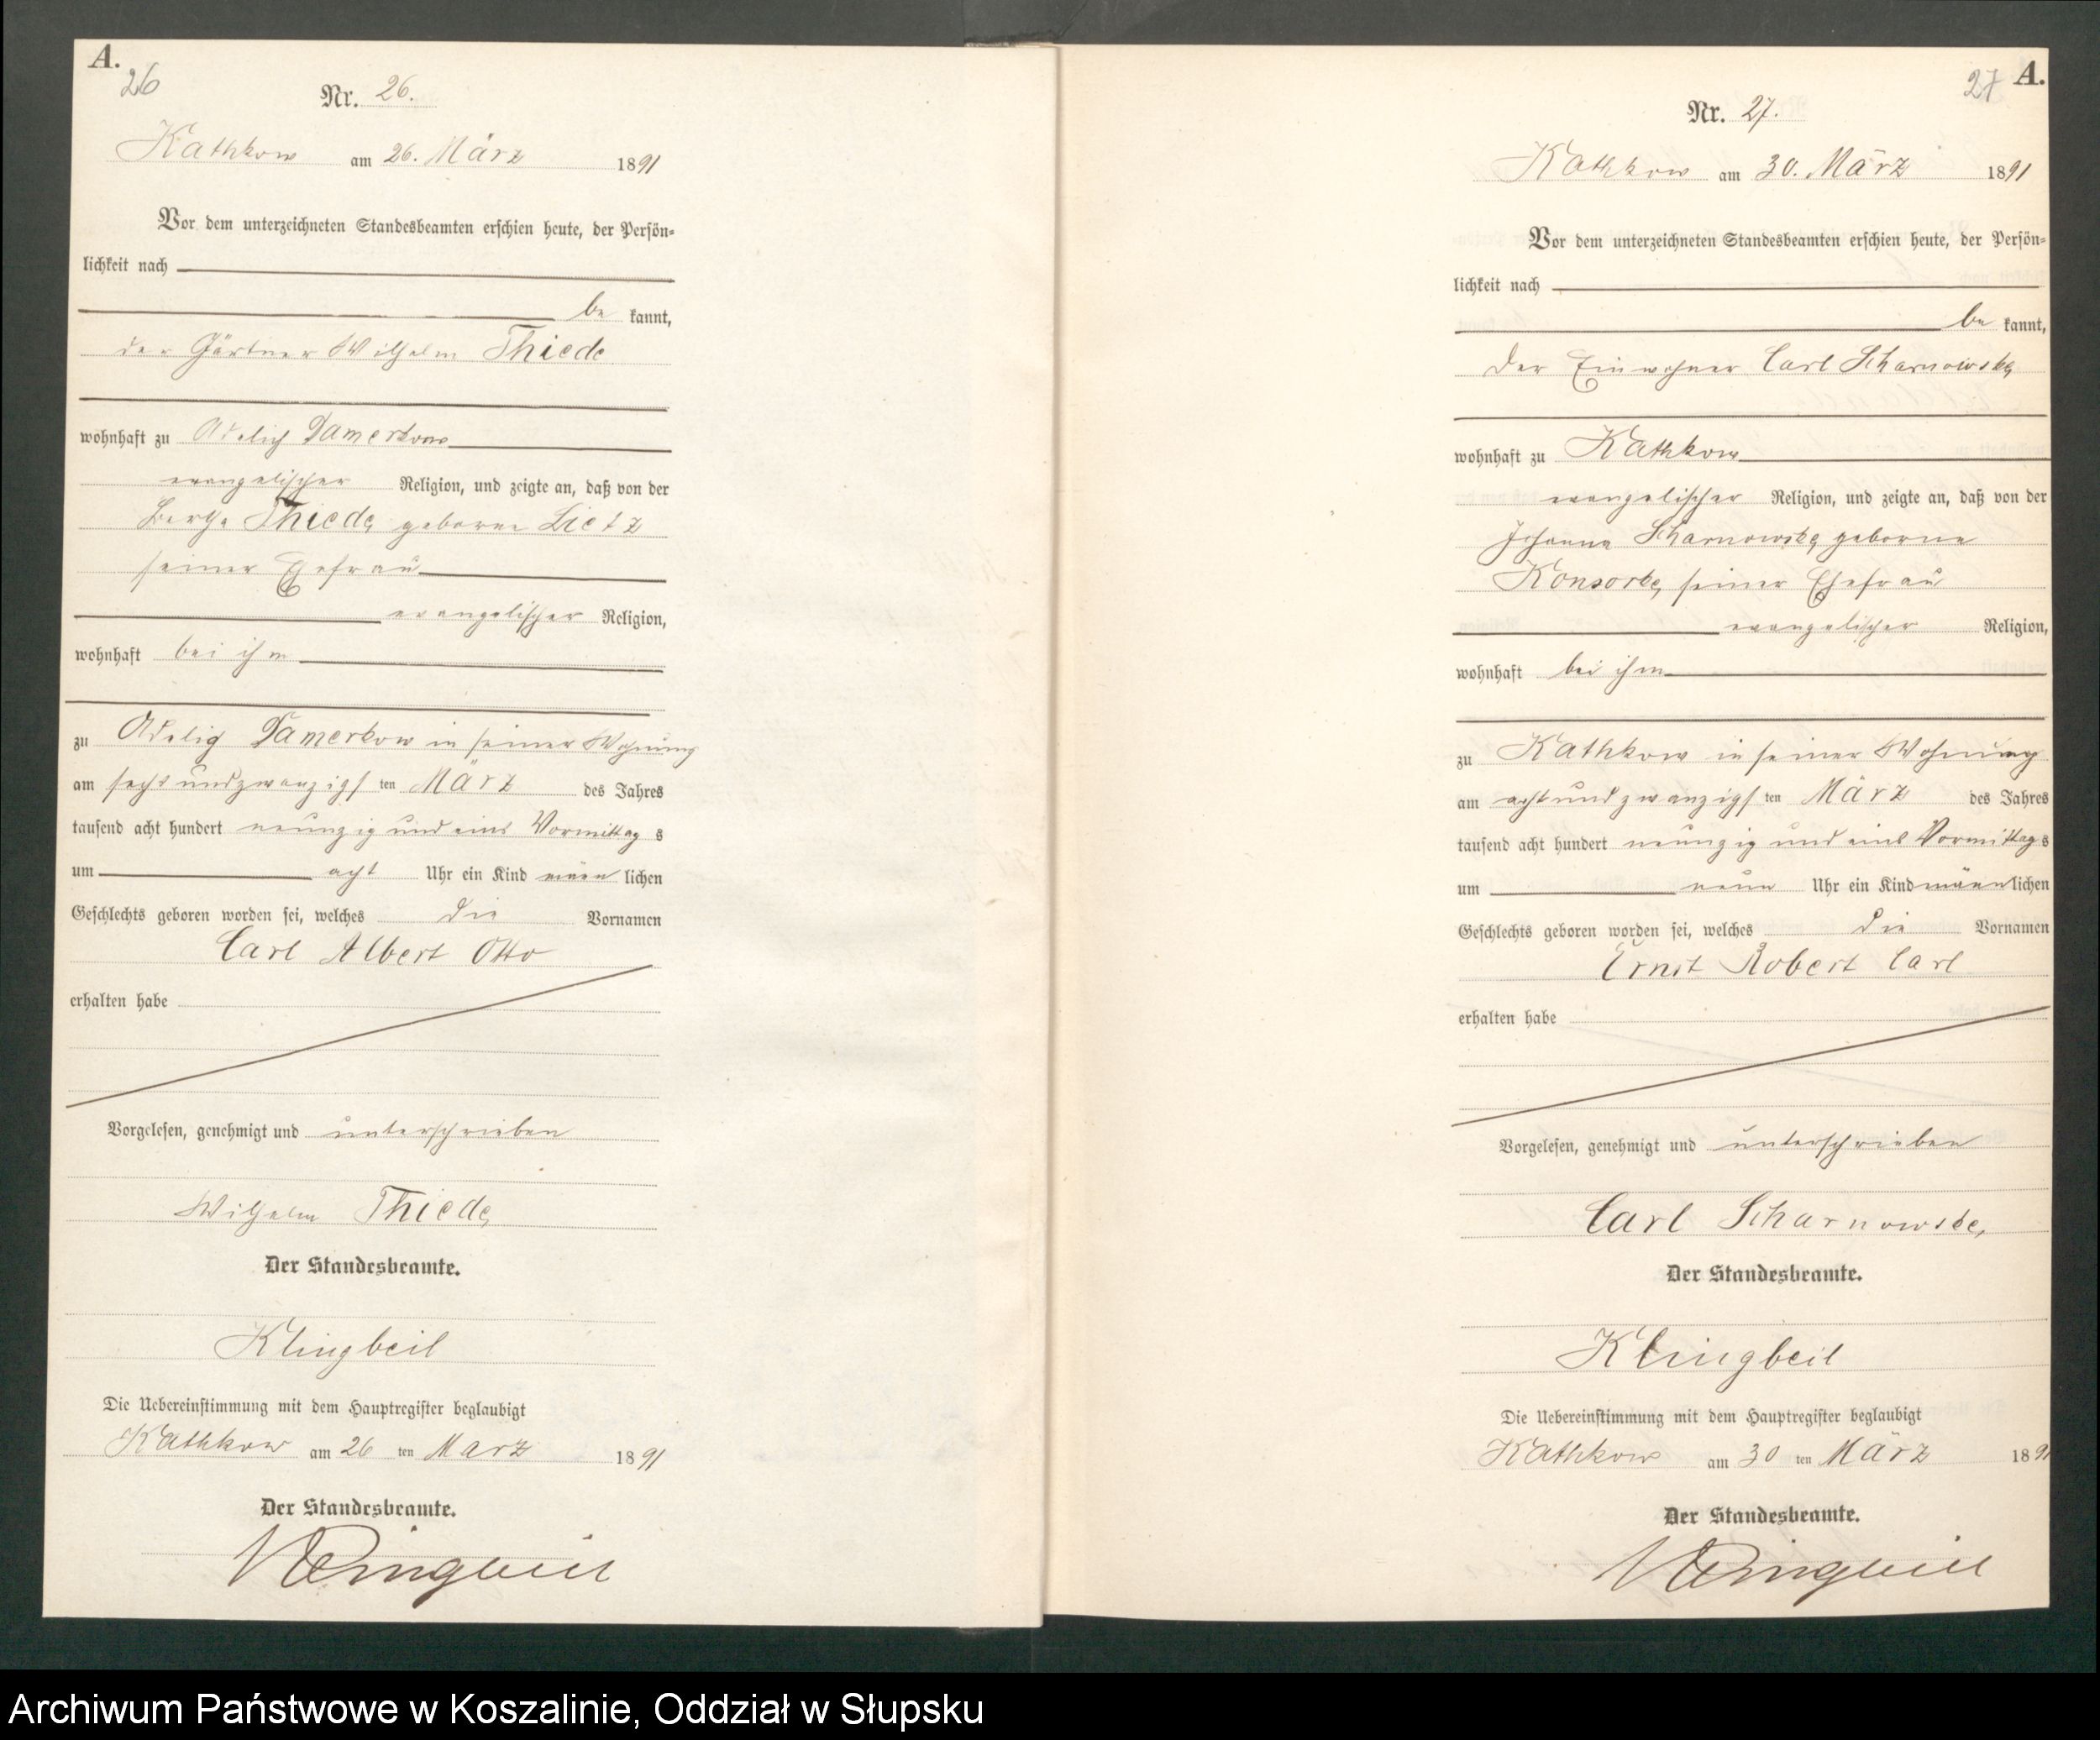 A.
26
Nr. 26.
Kathkow am 26. März 1891
Vor dem unterzeichneten Standesbeamten erschien heute, der Persön-
lichkeit nach
be kannt,
der Gärtner Wilhelm Thiede
wohnhaft zu Adelig Damerkow
evangelischer Religion, und zeigte an, daß von der
Bertha Thiede geborne Lietz
seiner Ehefrau
evangelischer Religion,
wohnhaft bei ihm
zu Adelig Damerkow in seiner Wohnung
am sechsundzwanzigsten März des Jahres
tausend acht hundert neunzig und eins Vormittags
um acht Uhr ein Kind männlichen
Geschlechts geboren worden sei, welches die Vornamen
Carl Albert Otto
erhalten habe
Vorgelesen, genehmigt und unterschrieben
Wilhelm Thiede
Der Standesbeamte.
Klingbeil
Die Uebereinstimmung mit dem Hauptregister beglaubigt
Kathkow am 26 ten März 1891
Der Standesbeamte.
Klingbeil
27 A.
Nr. 27.
Kathkow am 30. März 1891
Vor dem unterzeichneten Standesbeamten erschien heute, der Persön-
lichkeit nach
be kannt,
der Einwohner Carl Scharnowske
wohnhaft zu Kathkow
evangelischer Religion, und zeigte an, daß von der
Johanna Scharnowske geborne
Konsorke, seiner Ehefrau
evangelischer Religion,
wohnhaft bei ihm
zu Kathkow in seiner Wohnung
am achtundzwanzigsten März des Jahres
tausend acht hundert neunzig und eins Vormittags
um neun Uhr ein Kind männlichen
Geschlechts geboren worden sei, welches die Vornamen
Ernst Robert Carl
erhalten habe
Vorgelesen, genehmigt und unterschrieben
Carl Scharnowske,
Der Standesbeamte.
Klingbeil
Die Uebereinstimmung mit dem Hauptregister beglaubigt
Kathkow am 30 ten März 1891
Der Standesbeamte.
Klingbeil
Archiwum Państwowe w Koszalinie, Oddział w Słupsku